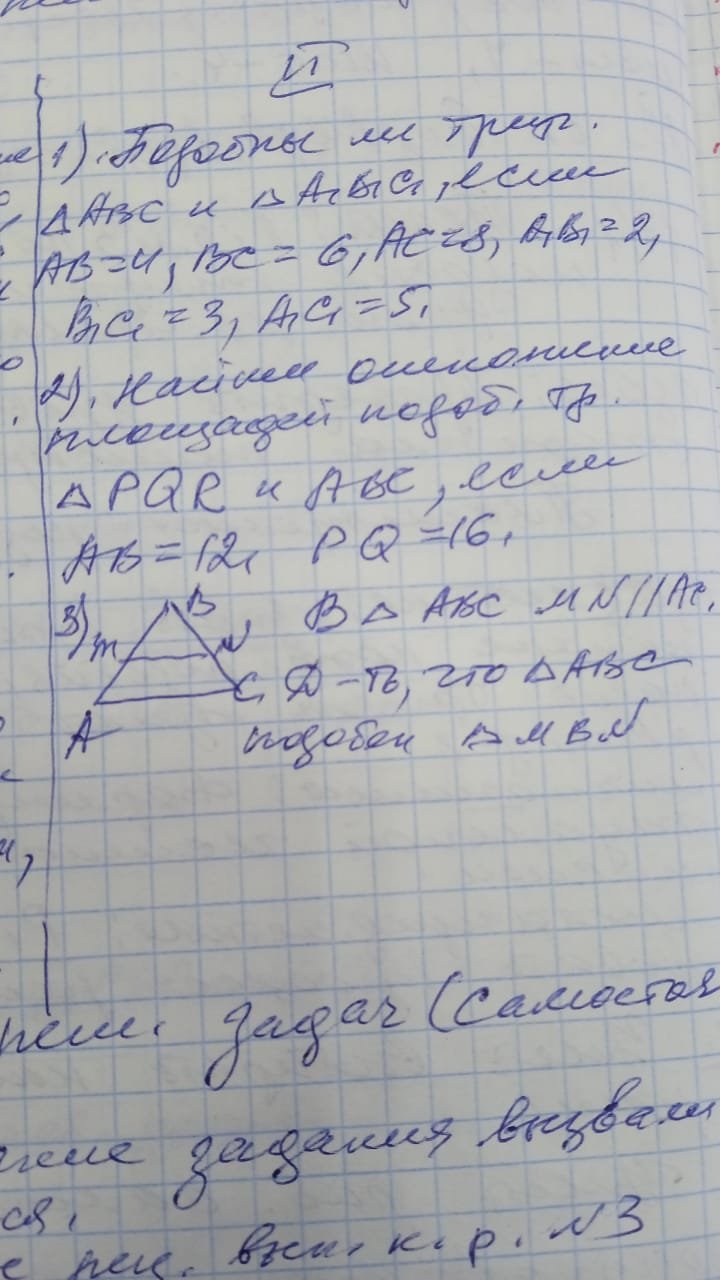 II
1). Подобны ли треуг.
△ABC и △A₁B₁C₁, если
AB=4, BC = 6, AC=8, A₁B₁=2,
B₁C₁ = 3, A₁C₁ = 5.
2). Найти отношение
площадей подоб. тр.
△ PQR и ABC, если
AB = 12, PQ = 16.
3) B В △ ABC MN//AC.
m N
C Д-ть, что △ABC
A подобен △ MBN
реш. задач (самостоя
задания вызвали
ся.
вып. к. р. №3